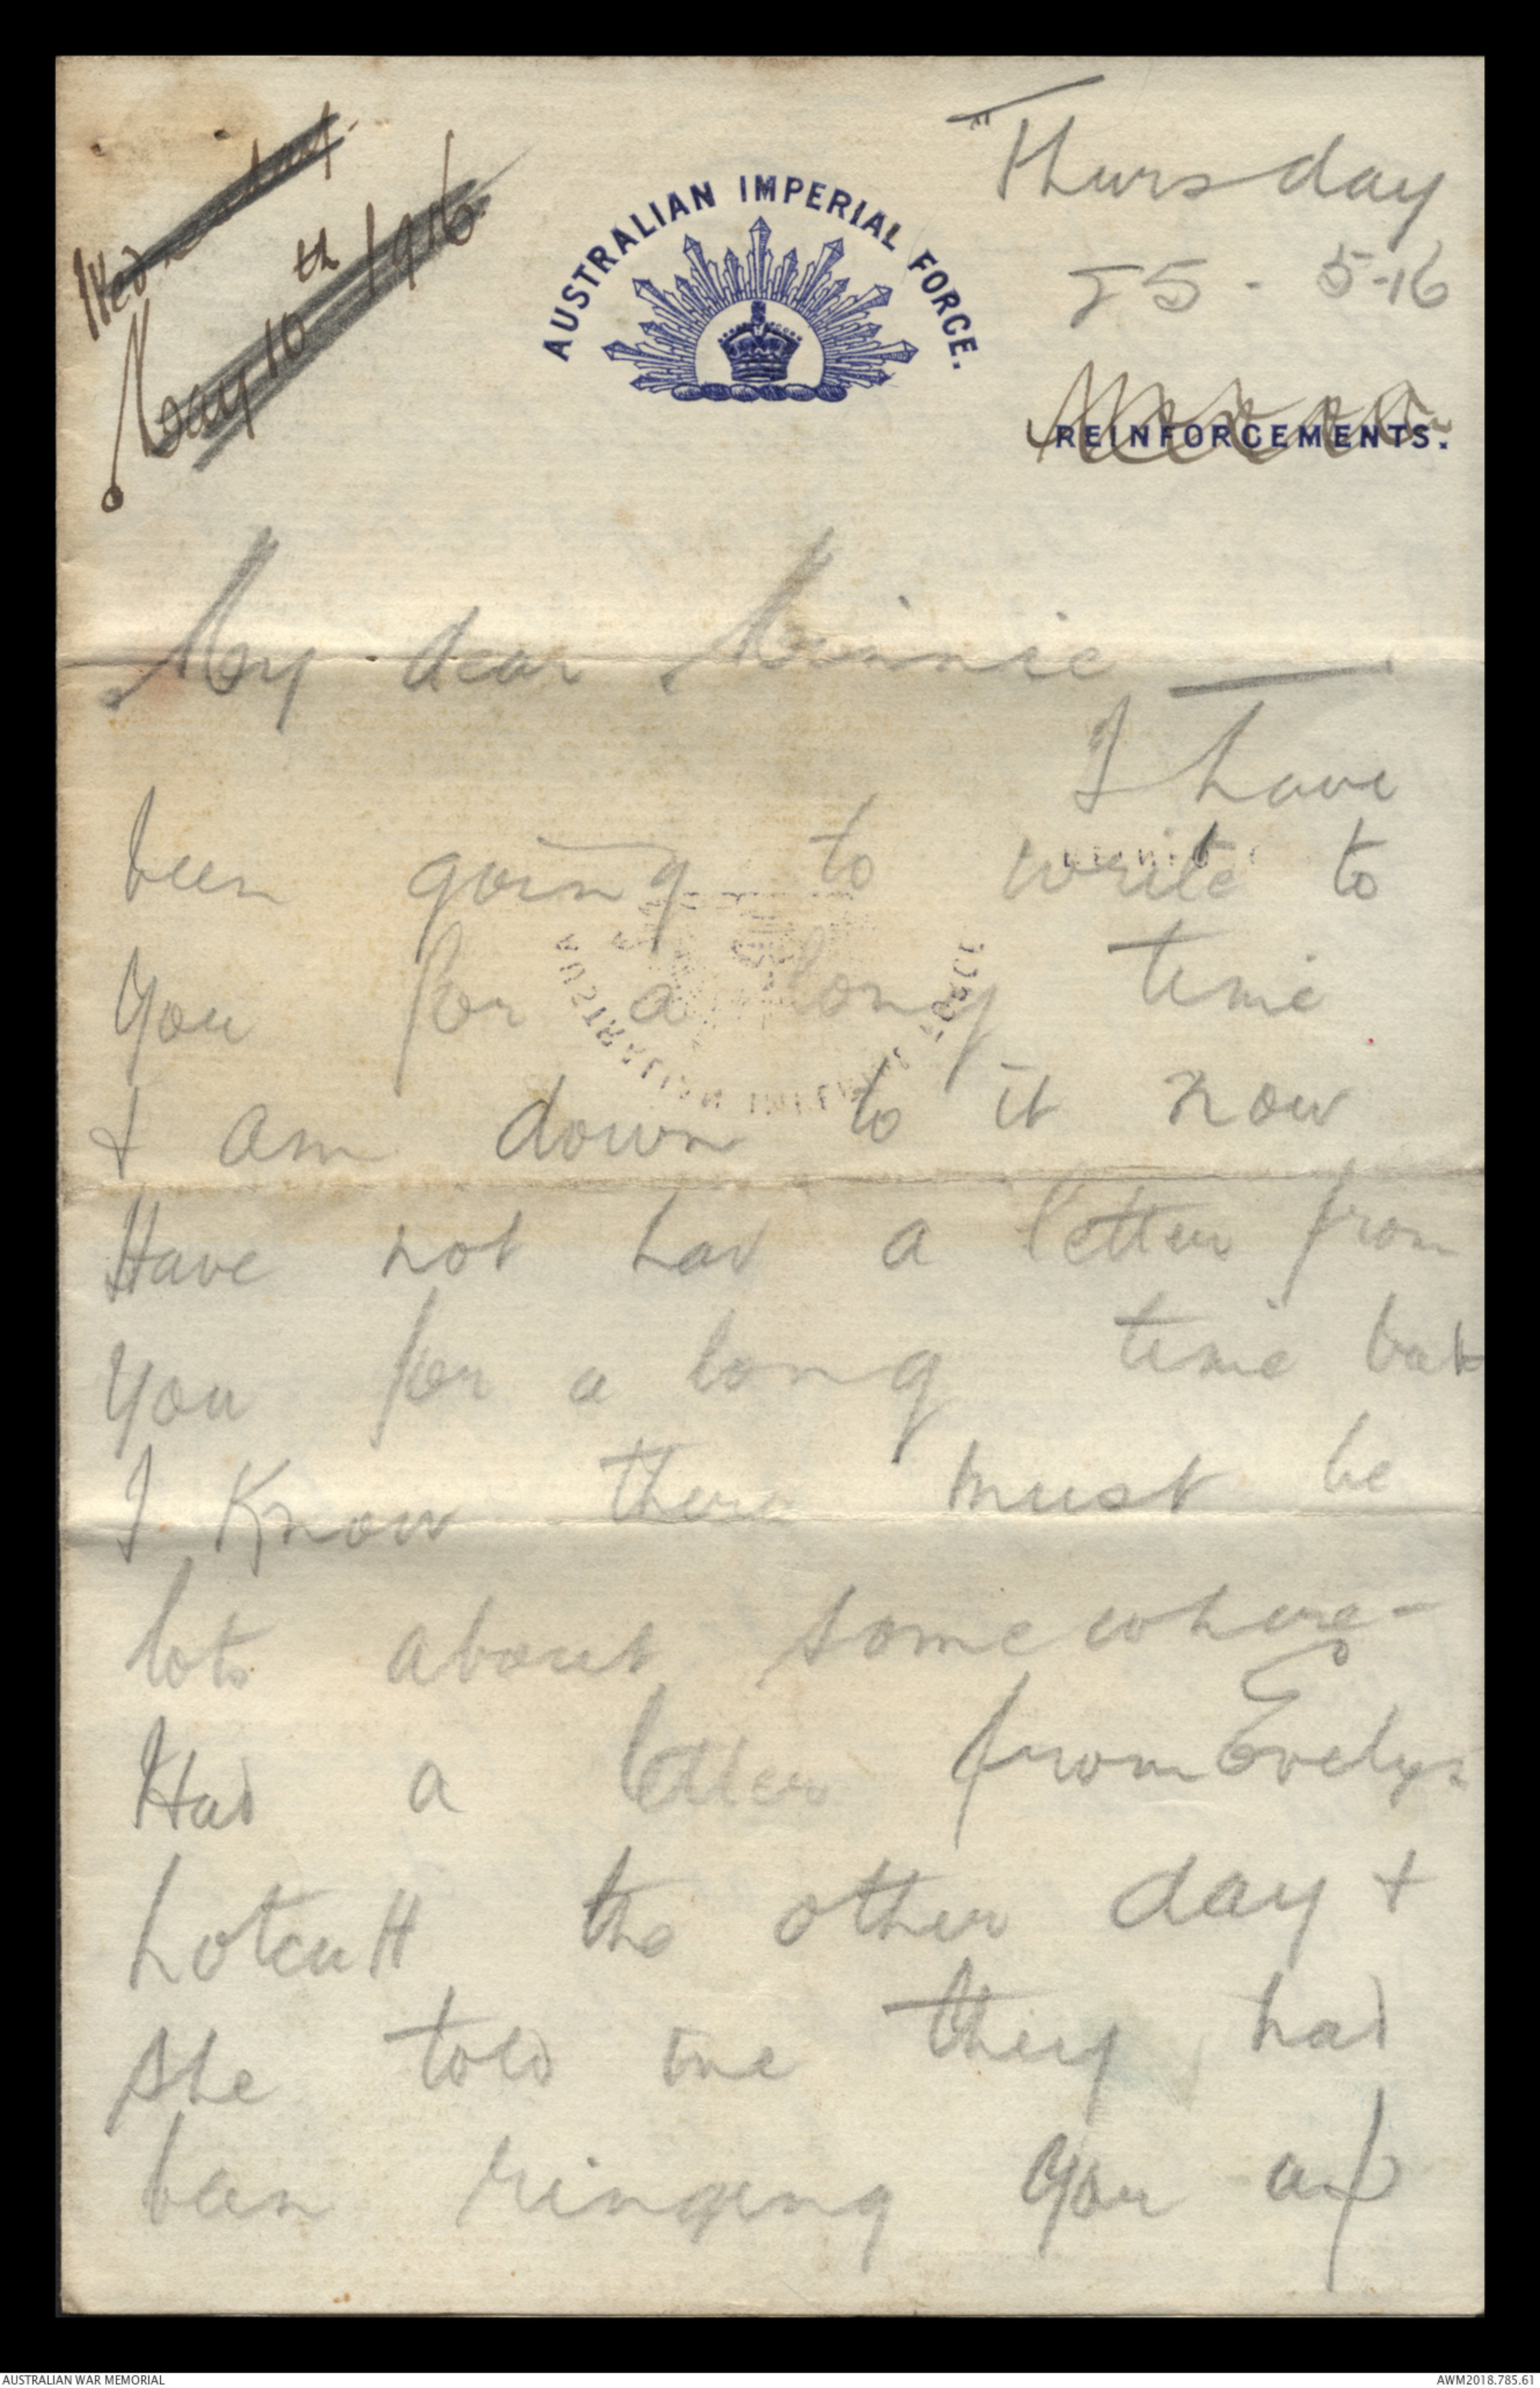 Wednesday
May 10th 1916
AUSTRALIAN IMPERIAL FORCE.
Thursday
25-5-16
REINFORCEMENTS.
My dear Minnie
I have
been going to write to
you for a long time
& am down to it now
Have not had a letter from
you for a long time but
I know there must be
lots about somewhere -
Had a letter from Evelyn
Hotcutt the other day +
she told me they had
been ringing you up
AUSTRALIAN WAR MEMORIAL
AWM2018.785.61